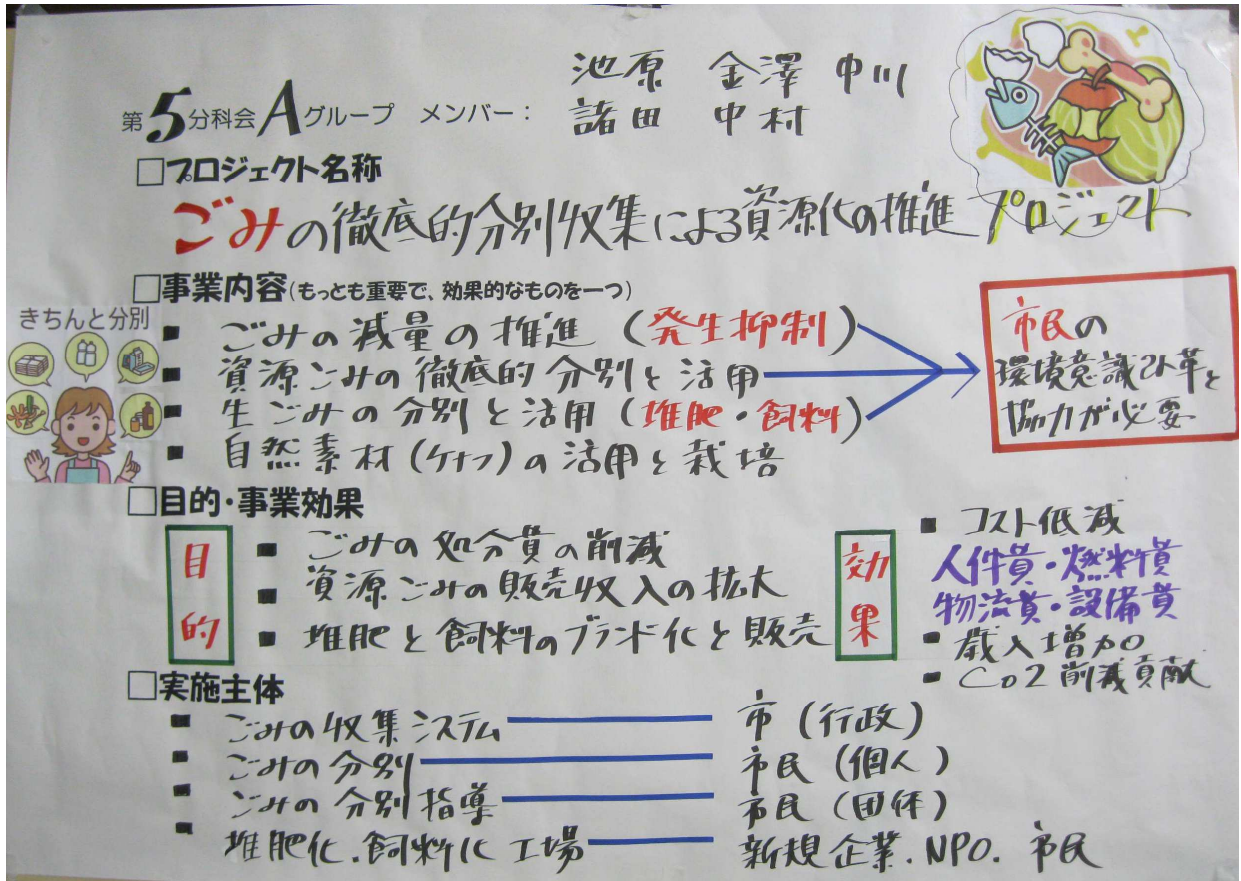 池原 金澤 中川
第5分科会Aグループ メンバー: 諸田 中村
□プロジェクト名称
ごみの徹底的分別収集による資源化の推進 プロジェクト
□事業内容(もっとも重要で、効果的なものを一つ)
きちんと分別
■ ごみの減量の推進 (発生抑制)
■ 資源ごみの徹底的分別と活用
■ 生ごみの分別と活用 (堆肥・飼料)
■ 自然素材(ケナフ)の活用と栽培
市民の
環境意識改革と
協力が必要
□目的・事業効果
目的
■ ごみの処分費の削減
■ 資源ごみの販売収入の拡大
■ 堆肥と飼料のブランド化と販売
効果
■ コスト低減
人件費・燃料費
物流費・設備費
■ 歳入増加
■ Co2削減貢献
□実施主体
■ ごみの収集システム 市(行政)
■ ごみの分別 市民(個人)
■ ごみの分別指導 市民(団体)
■ 堆肥化.飼料化工場 新規企業.NPO.市民